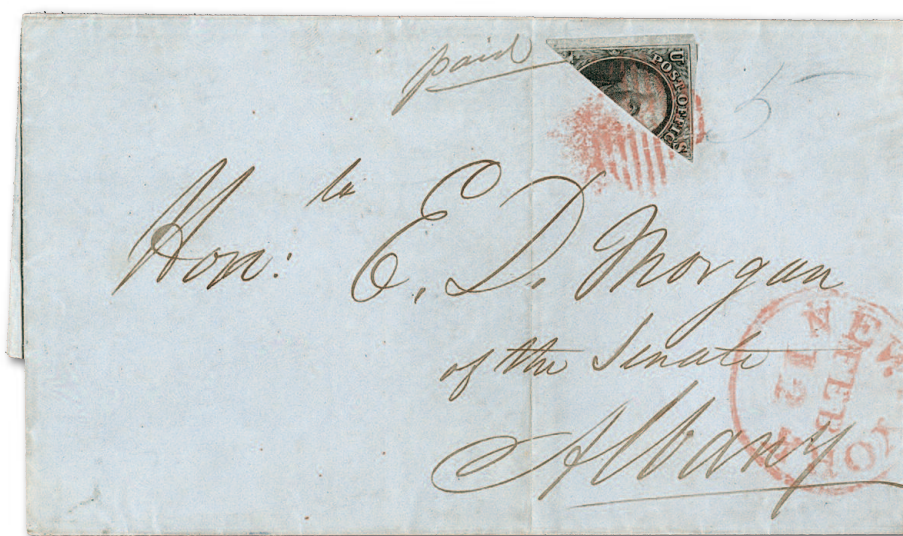 paid
U POST OFFIC S
5
Hon: la E. D. Morgan
of the Senate
Albany
NEW YOR
FEB